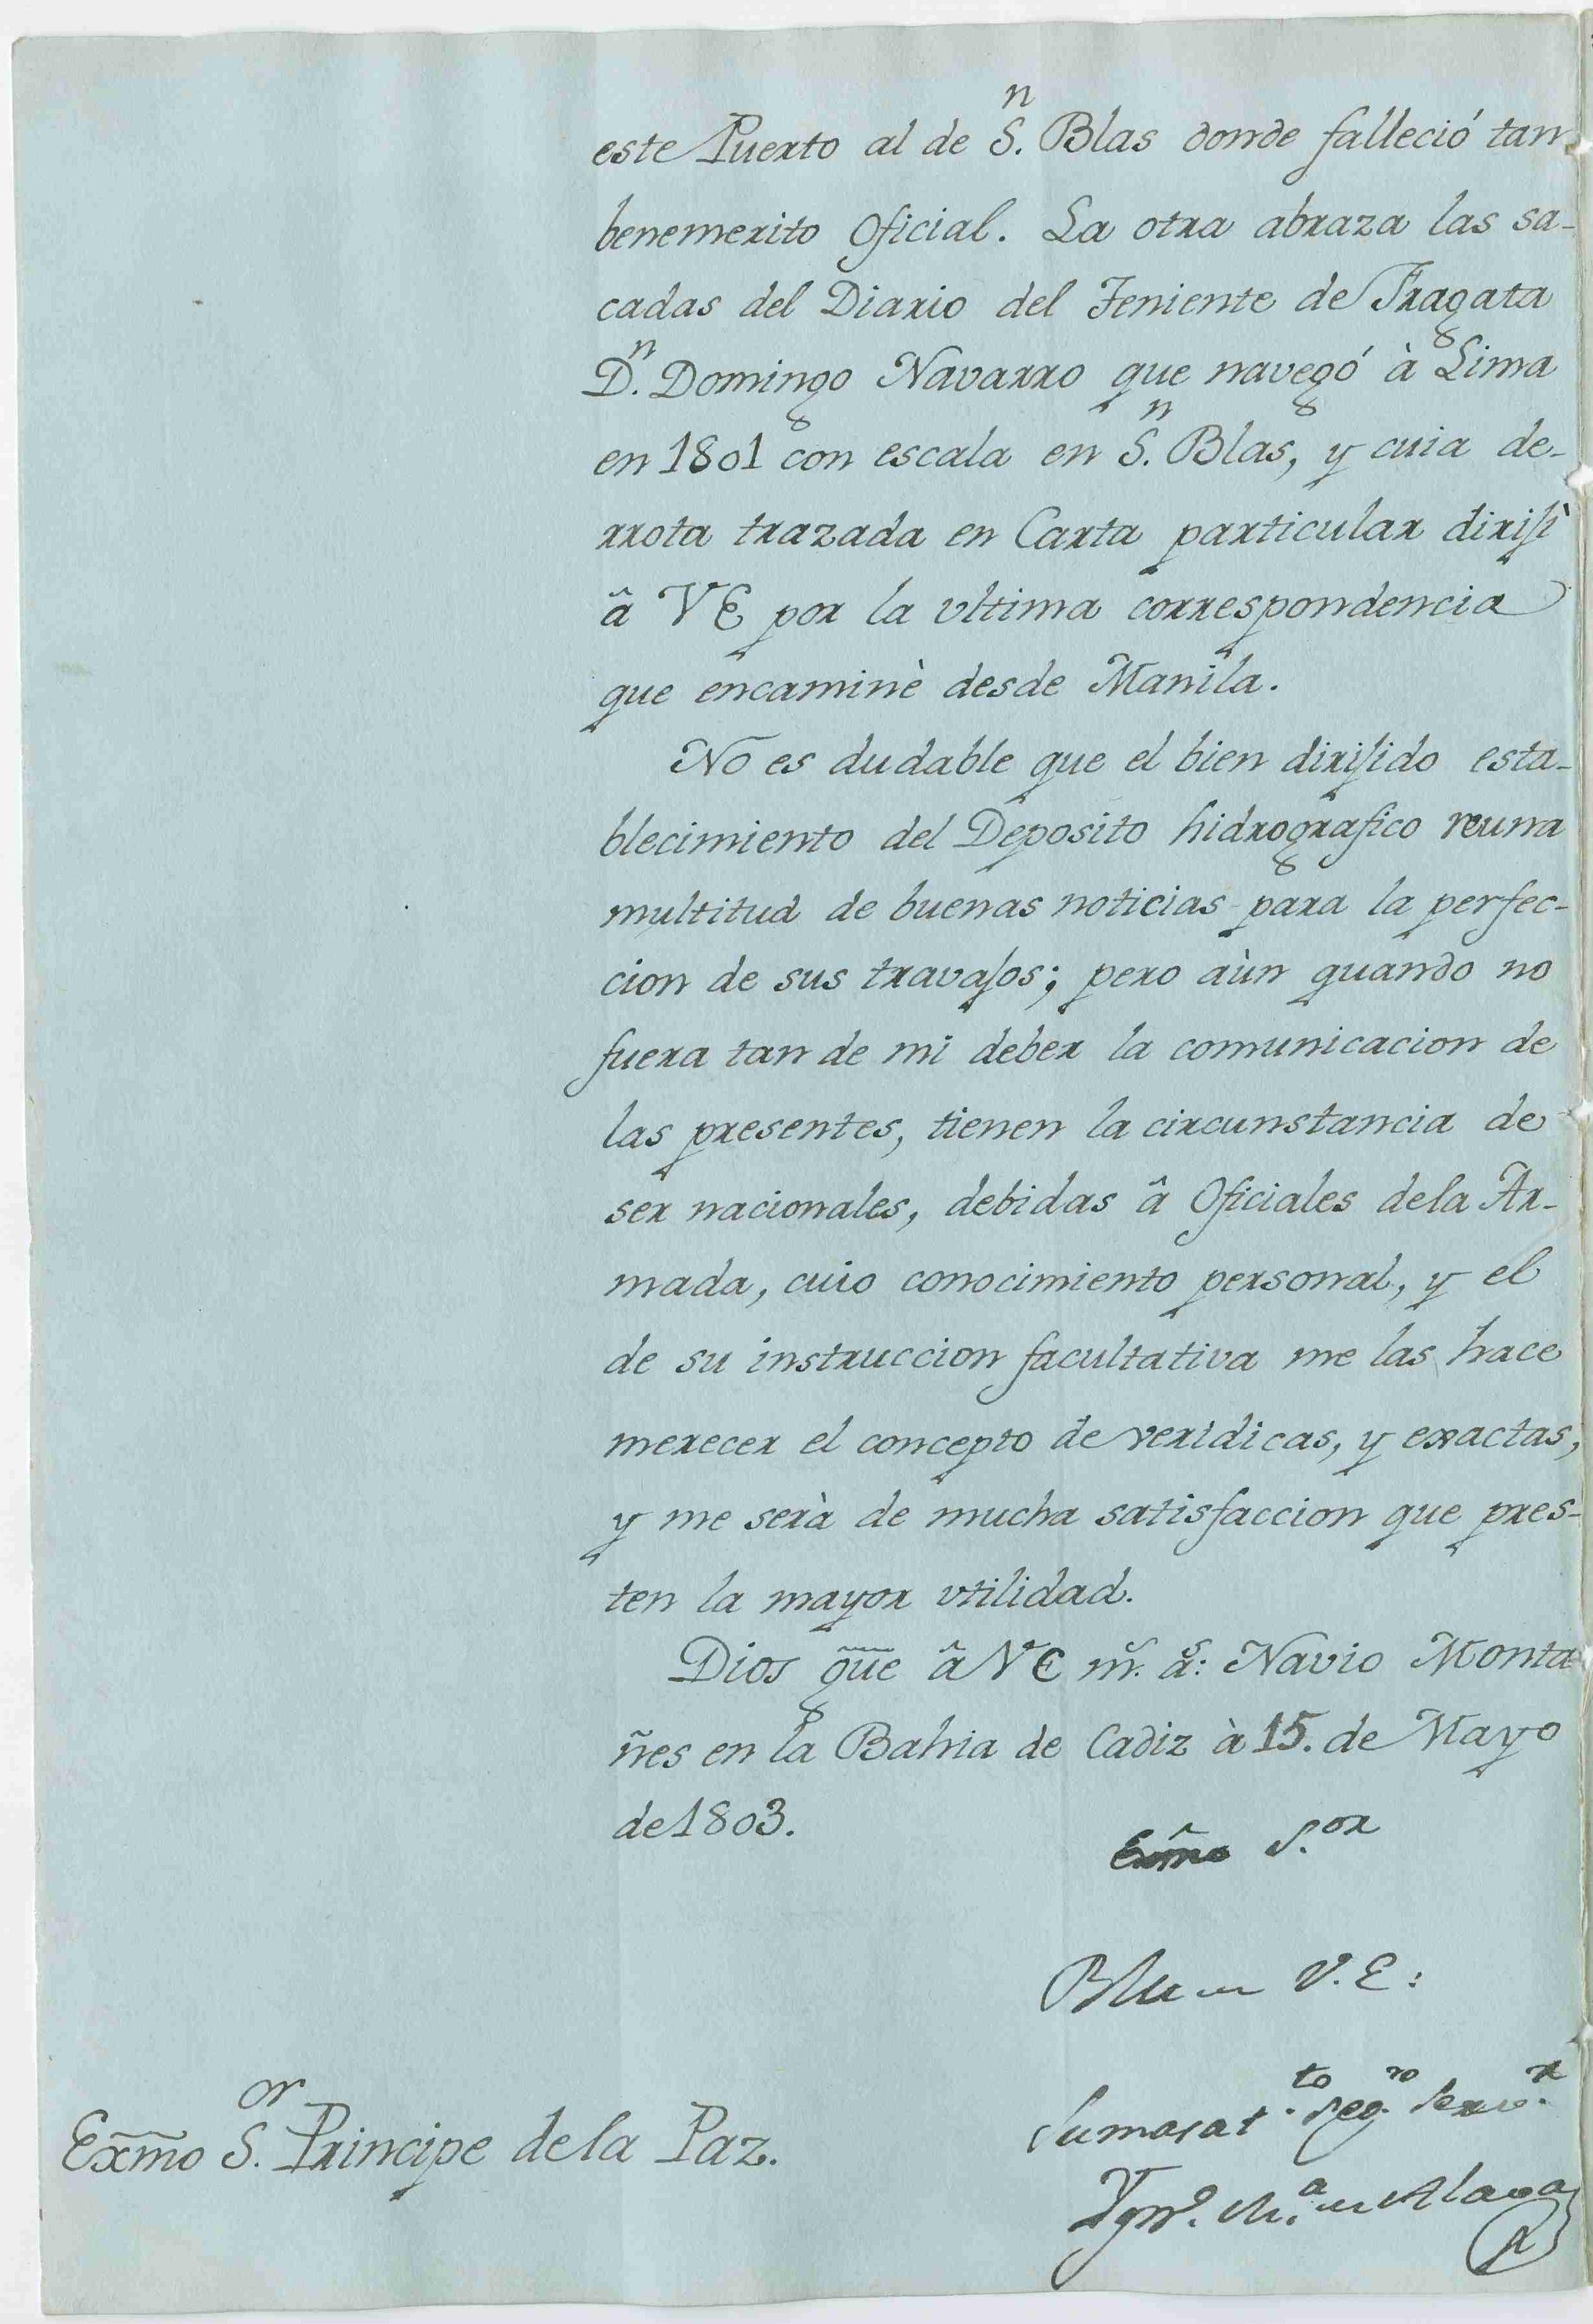 este Puerto al de S.ⁿ Blas donde falleció tan
benemerito Oficial. La otra abraza las sa-
cadas del Diario del Teniente de Fragata
D.ⁿ Domingo Navarro que navegó à Lima
en 1801 con escala en S.ⁿ Blas, y cuia de-
rrota trazada en Carta particular dirijì
â VE por la vltima correspondencia
que encaminè desde Manila.
No es dudable que el bien dirijido esta-
blecimiento del Deposito hidrografico reuna
multitud de buenas noticias para la perfec-
cion de sus travajos; pero aùn quando no
fuera tan de mi deber la comunicacion de
las presentes, tienen la circunstancia de
ser nacionales, debidas â Oficiales dela Ar-
mada, cuio conocimiento personal, y el
de su instruccion facultativa me las hace
merecer el concepto de veridicas, y exactas,
y me serà de mucha satisfaccion que pres-
ten la mayor vtilidad.
Dios gũe â VE m.ˢ a.ˢ: Navio Monta
ñes en la Bahia de Cadiz à 15. de Mayo
de 1803.
Exm̃o S.ᵒʳ
V. E:
Sumasat.ᵗᵒ seg.ʳᵒ serv.ʳ
Ygn.º M.ᵃ de Alava
Exm̃o S.ᵒʳ Principe dela Paz.